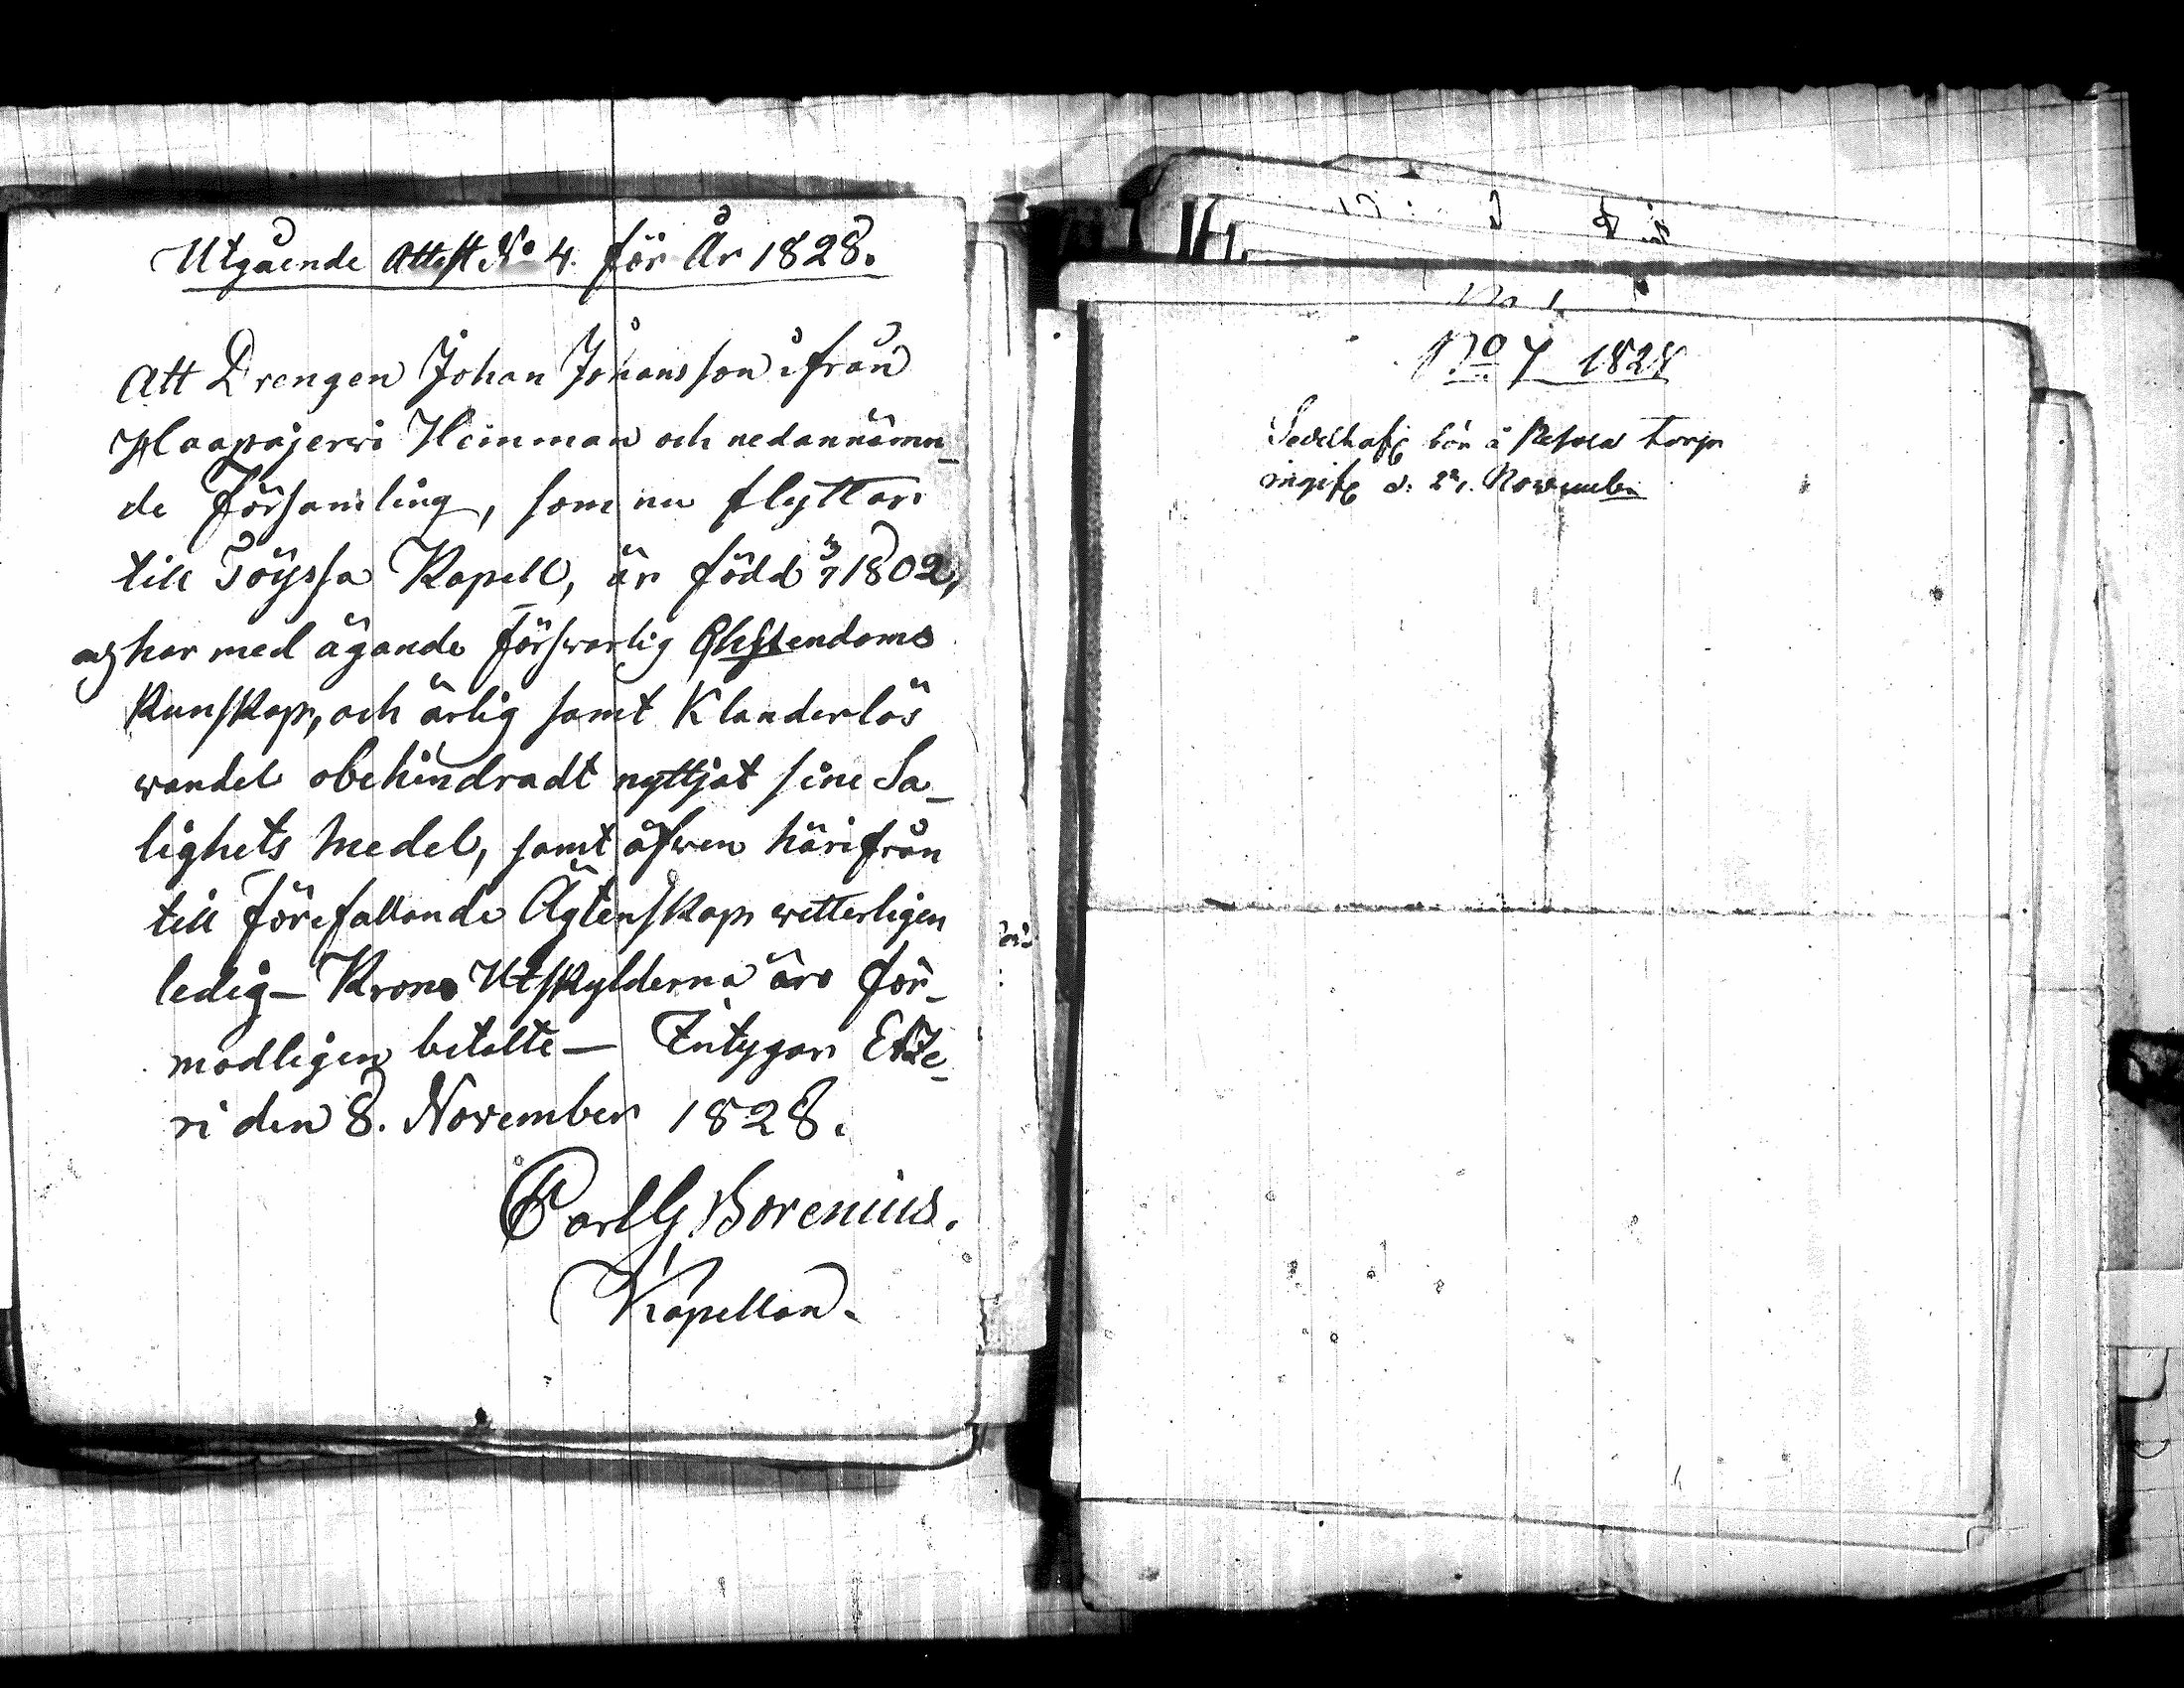 Utgående Attest No 4. för År 1828.
Att Drengen Johan Johansson ifrån
Haapajerwi Hemman och nedannämn-
de Församling, som nu flyttar
till Töyssa Kapell, är född 3/7 1802,
har med ägande förswarlig Chstendoms
kunskap, och ärlig samt klanderlös
wandel obehindradt nyttjat sine Sa-
lighets medel, samt äfwen härifrån
till förefallande Ägtenskap wetterligen
ledig - Krono Utskylderna äro för-
modligen betalte - Intygar Etze-
ri den 8. November 1828.
Carl G Borenius.
Kapellan.
No 7 1828
Sedelhafv bör å Torp
d: November